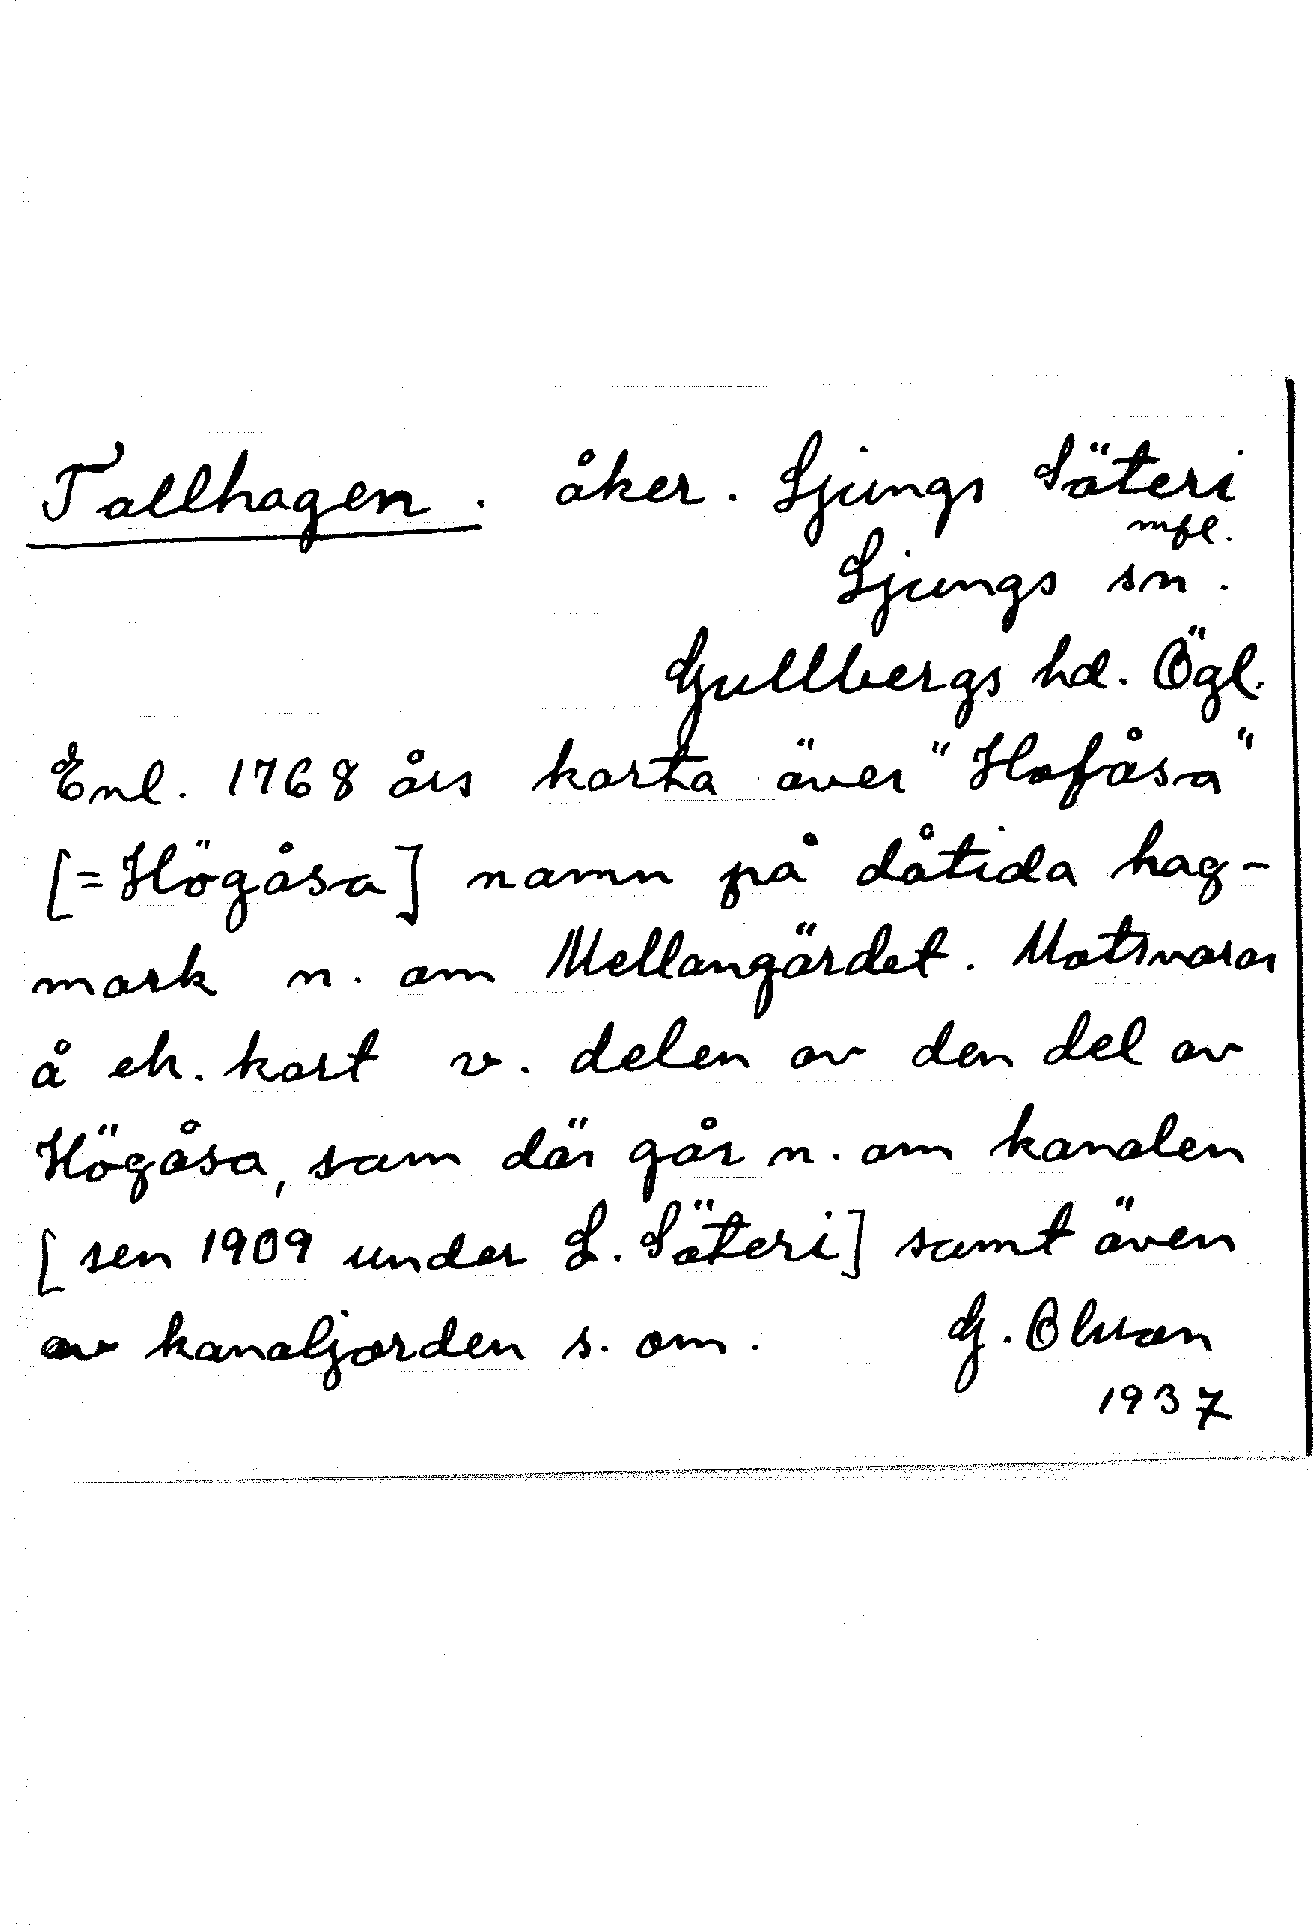 Tallhagen. åker. Ljungs Säteri
mfl.
Ljungs sn.
Gullbergs hd. Ögl.
Enl. 1768 års karta över "Hofåsa"
[=Högåsa] namn på dåtida hag-
mark n. om Mellangärdet. Motsvarar
å ek. kart v. delen av den del av
Högåsa, som där går n. om kanalen
[sen 1909 under L. Säteri] samt även
av kanaljorden s. om. G. Olsson
1937